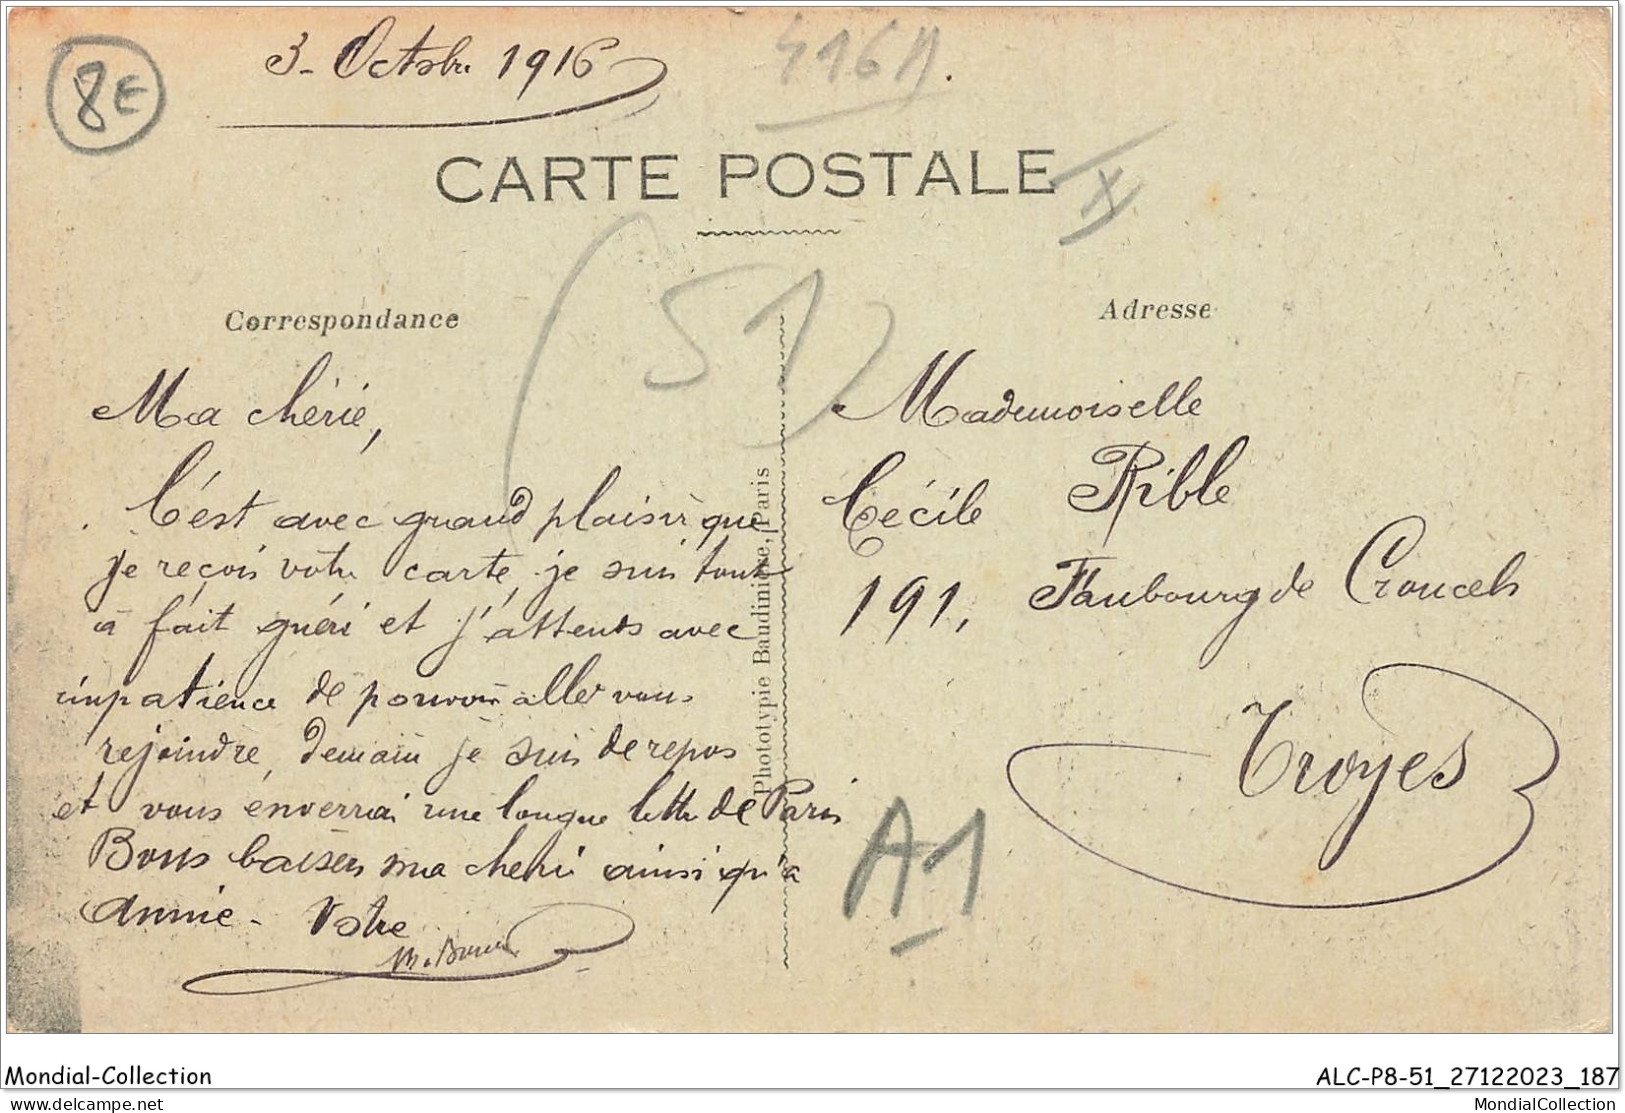 8E
3 - Octobre 1916
416A
CARTE POSTALE
X
(51)
Correspondance
Ma chérie,
C'est avec grand plaisir que
je reçois votre carte, je suis tout
à fait guéri et j'attends avec
impatience de pouvoir aller vous
rejoindre, demain je suis de repos
et vous enverrai une longue lettre de Paris
Bons baisers ma cherie ainsi qu'à
Annie - Votre
M.
Phototypie Baudinière, Paris
Adresse
Mademoiselle
Cécile Rible
191, Faubourg de Croncels
Troyes
A1
Mondial-Collection
ALC-P8-51_27122023_187
delcampe.net
MondialCollection